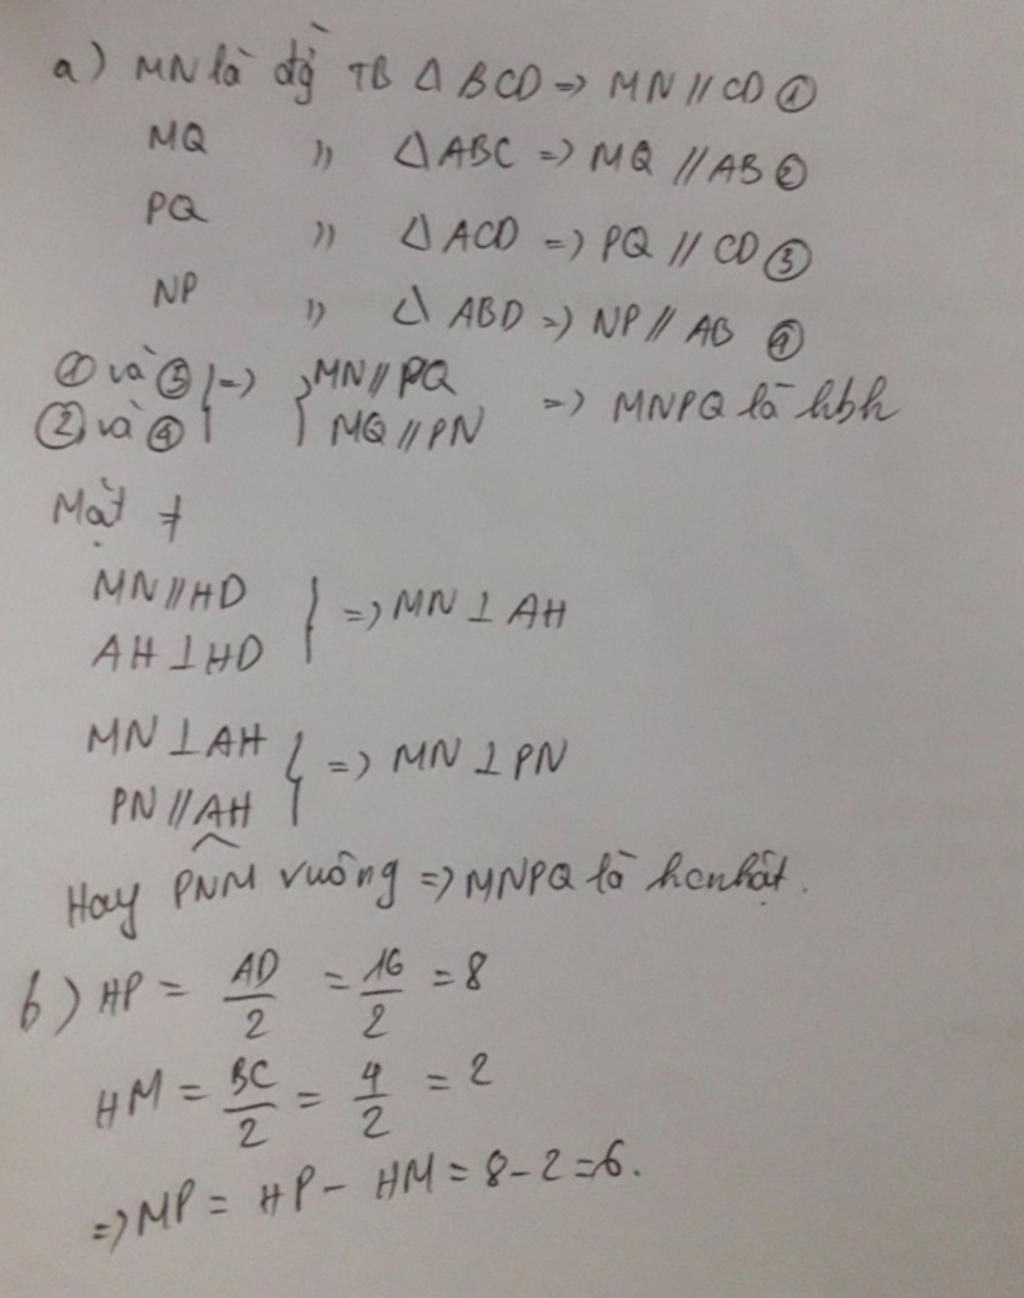 a) MN là đg̀ TB Δ BCD => MN // CD ①
MQ " Δ ABC => MQ // AB ②
PQ " Δ ACD => PQ // CD ③
NP " Δ ABD => NP // AB ④
① và ③ } => { MN // PQ => MNPQ là hbh
② và ④ MQ // PN
Mặt ≠
MN // HD } => MN ⊥ AH
AH ⊥ HD
MN ⊥ AH } => MN ⊥ PN
PN // AH
Hay \widehat{PNM} vuông => MNPQ là hcnhật.
b) HP = AD/2 = 16/2 = 8
HM = BC/2 = 4/2 = 2
=> MP = HP - HM = 8 - 2 = 6.